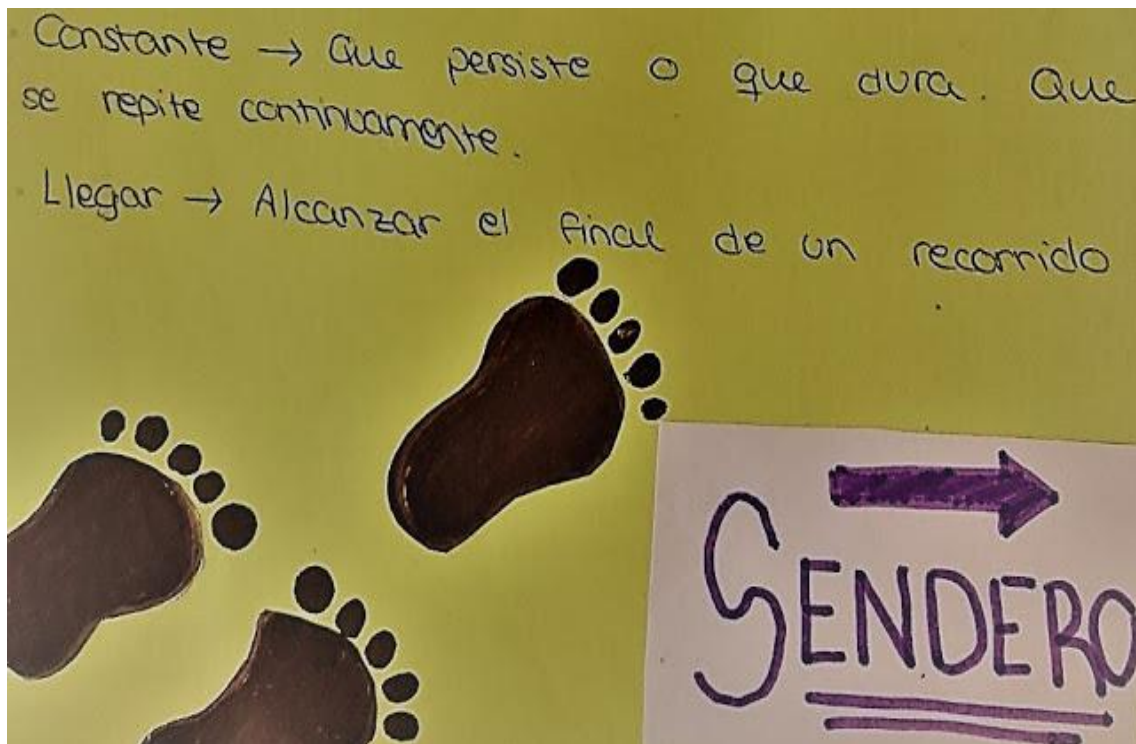 Constante → Que persiste o que dura. Que
se repite continuamente.
Llegar → Alcanzar el final de un recorrido
SENDERO